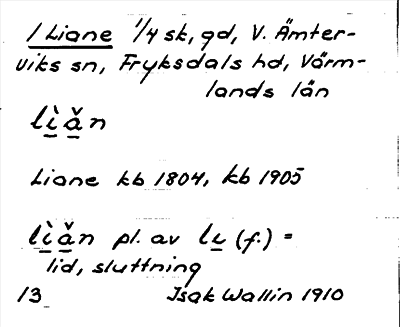 1 Liane 1/4 sk, gd, V. Ämter-
viks sn, Fryksdals hd, Värm-
lands län
lı̀ǎn
Liane kb 1804, kb 1905
lı̀ǎn pl. av lı (f.) =
lid, sluttning
13 Isak Wallin 1910